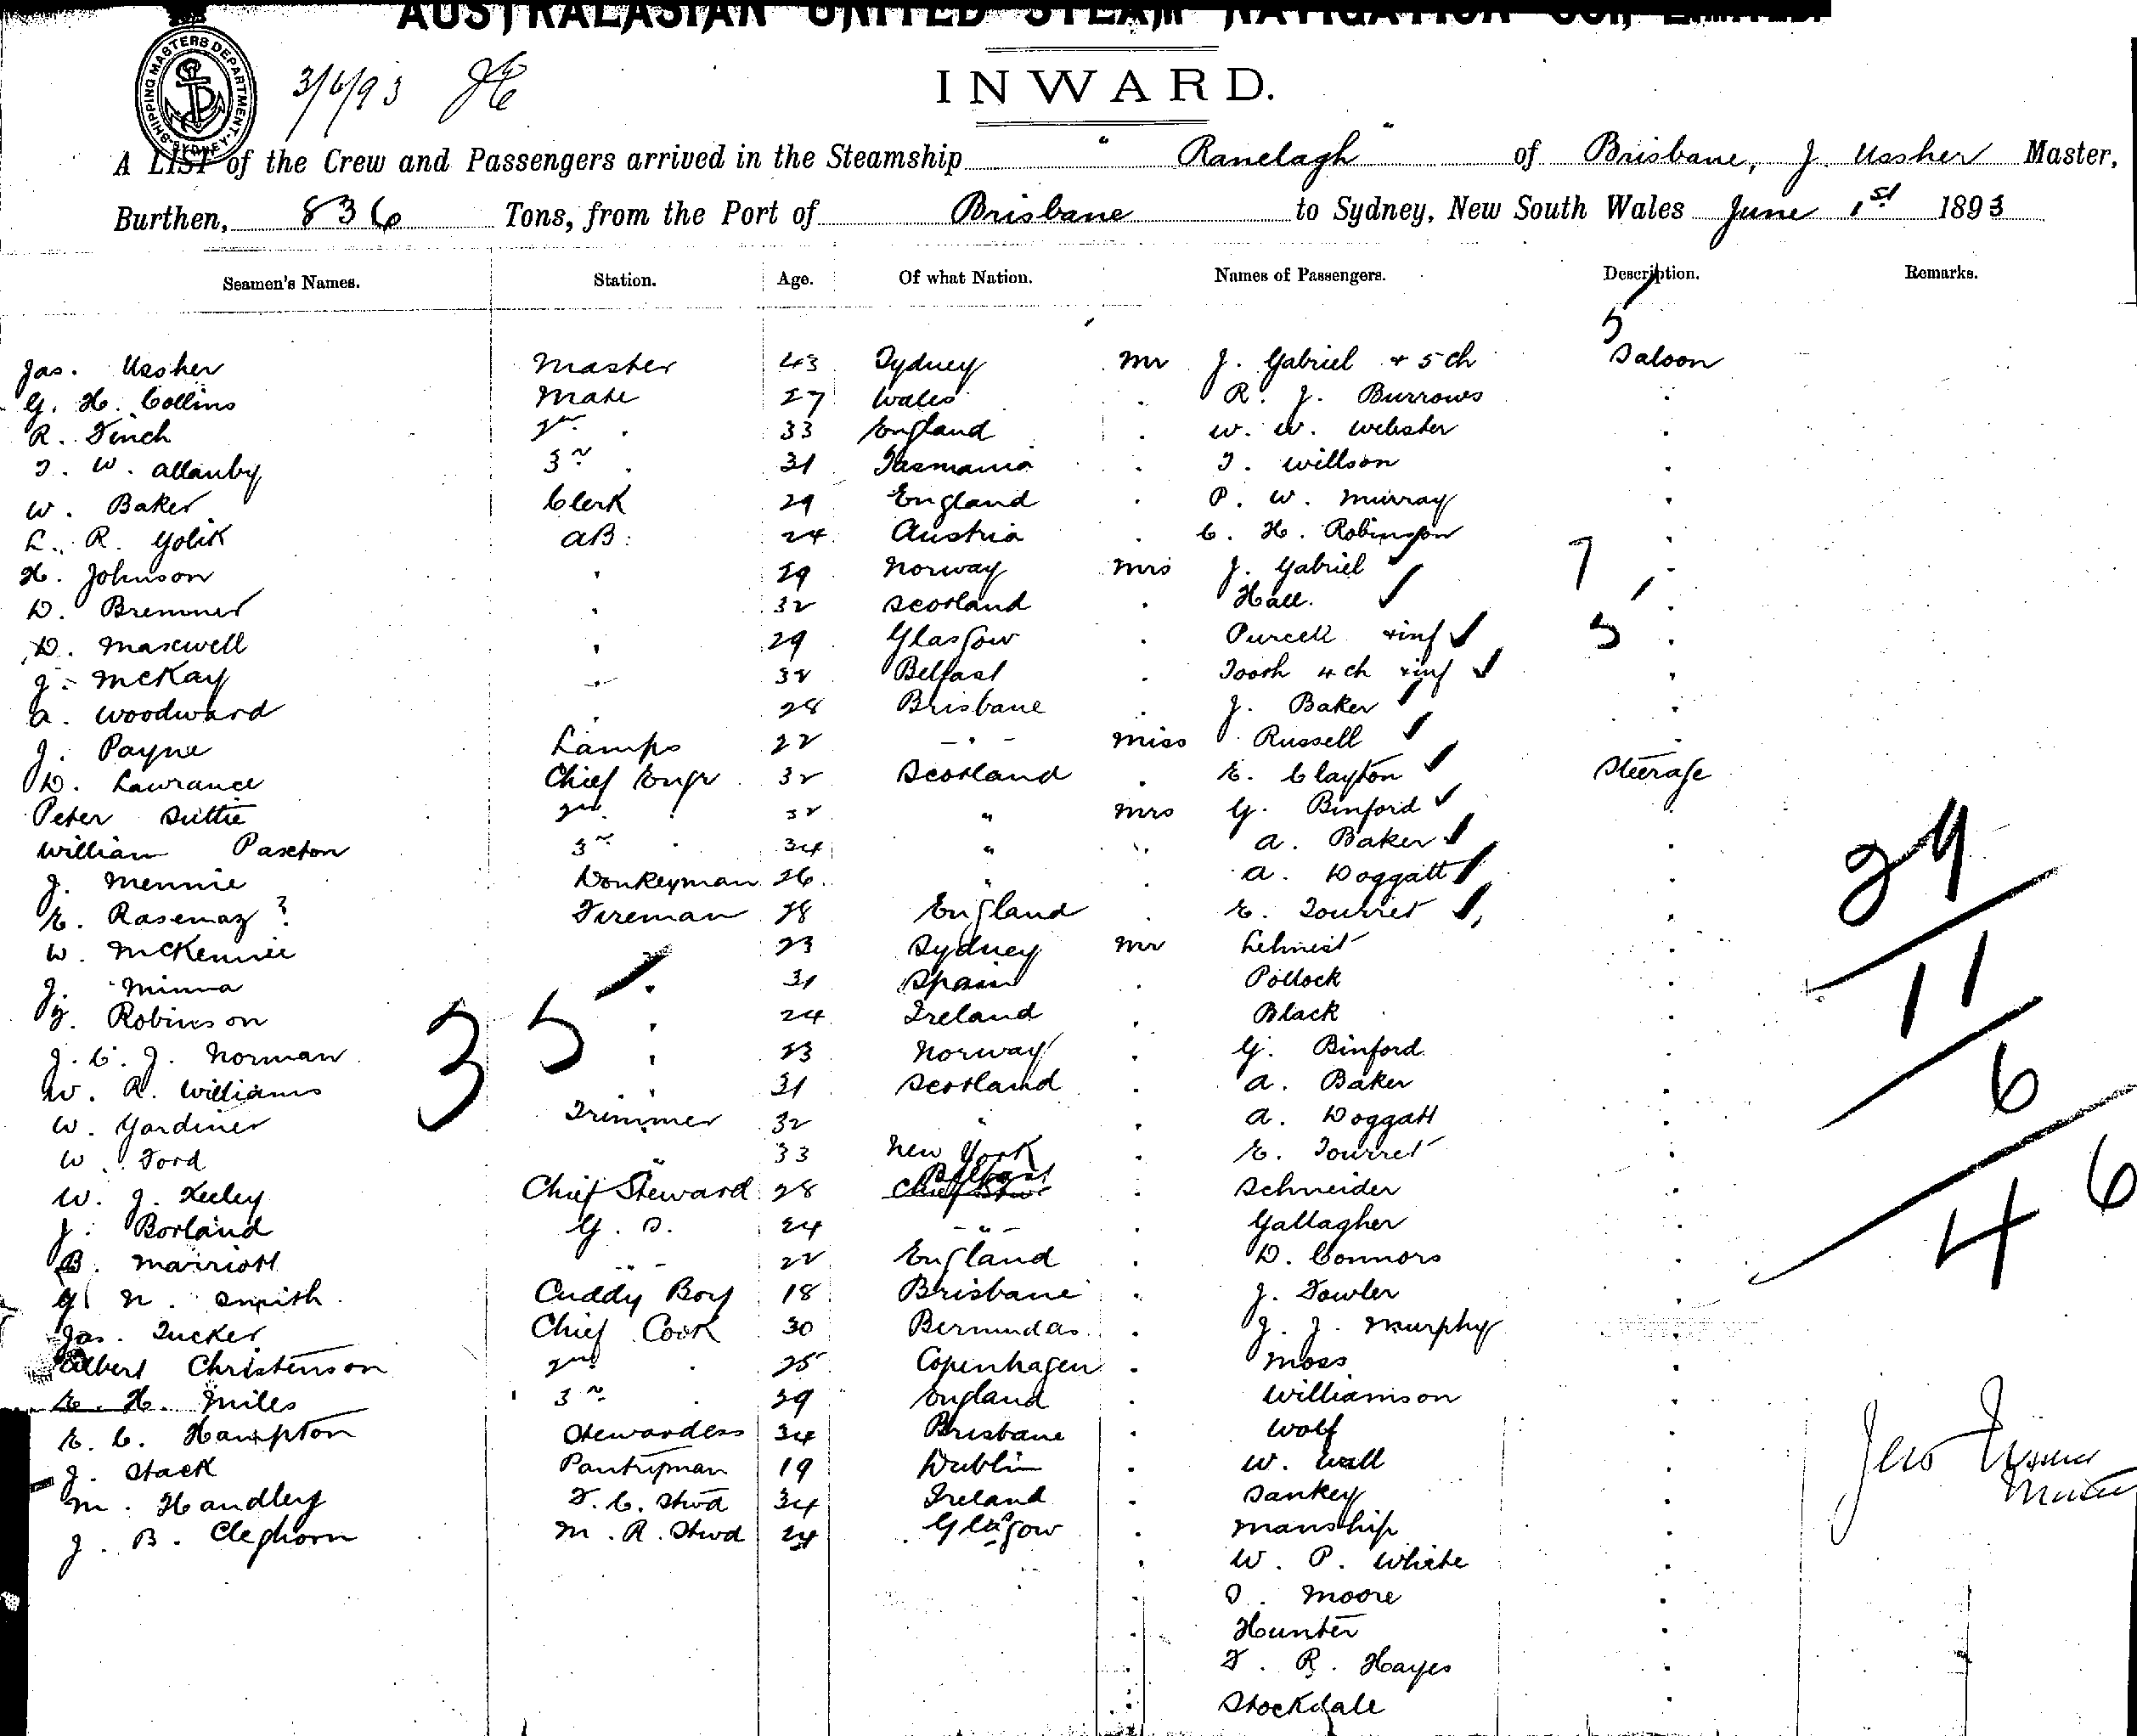 AUSTRALASIAN UNITED STEAM NAVIGATION CO., LIMITED.
SHIPPING MASTERS DEPARTMENT SYDNEY
3/6/93
INWARD.
A LIST of the Crew and Passengers arrived in the Steamship " Ranelagh " of Brisbane, J. Ussher Master,
Burthen, 836 Tons, from the Port of Brisbane to Sydney, New South Wales June 1st 1893
Seamen's Names. Station. Age. Of what Nation. Names of Passengers. Description. Remarks.
5
Jas. Ussher Master 43 Sydney Mr J. Gabriel + 5 ch Saloon
G. H. Collins Mate 27 Wales . R. J. Burrows .
R. Finch 2nd . 33 England . W. W. Webster .
T. W. Allanby 3rd . 31 Tasmania . T. Willson .
W. Baker Clerk 29 England . P. W. Murray .
L. R. Golik AB. 24 Austria . C. H. Robinson .
H. Johnson . 29 Norway Mrs J. Gabriel ✓ 7 .
D. Bremner . 32 Scotland . Hall. ✓ .
D. Maxwell . 29 Glasgow . Purcell + inf ✓ 5 .
J. McKay . 32 Belfast . Tooth 4 ch + inf ✓ .
A. Woodward . 28 Brisbane . J. Baker ✓ .
J. Payne Lamps 22 - " - Miss Russell ✓ .
D. Lawrance Chief Engr 32 Scotland . E. Clayton ✓ Steerage
Peter Suttie 2nd . 32 " Mrs G. Binford ✓
William Paxton 3rd . 34 " " A. Baker ✓ .
J. Mennie Donkeyman 26 " . A. Doggatt ✓ .
E. Rasemaz ? Fireman 28 England . E. Tourret ✓ .
W. McKennie . 23 Sydney Mr Lehnist .
J. Minna . 31 Spain . Pollock .
J. Robinson . 24 Ireland . Black .
J. C. J. Norman . 23 Norway . G. Binford .
W. R. Williams . 31 Scotland . A. Baker .
W. Gardiner Trimmer 32 " . A. Doggatt .
W. Ford " 33 New York . E. Tourret .
W. J. Keeley Chief Steward 28 Belfast . Schneider .
J. Borland G. S. 24 - " - . Gallagher .
B. Marriott - " - 22 England . D. Connors .
G. N. Smith Cuddy Boy 18 Brisbane . J. Fowler .
Jas. Tucker Chief Cook 30 Bermudas . J. J. Murphy .
Albert Christenson 2nd . 25 Copenhagen . Moss .
E. H. Miles 3rd . 29 England . Williamson .
E. C. Hampton Stewardess 34 Brisbane . Wolf .
J. Stack Pantryman 19 Dublin . W. Wall .
M. Handley F. C. Stwd 34 Ireland . Sankey .
J. B. Cleghorn M. R. Stwd 24 Glasgow . Manship .
. W. P. White .
. T. Moore .
. Hunter .
. F. R. Hayes .
. Stockdale .
35
29
11
6
46